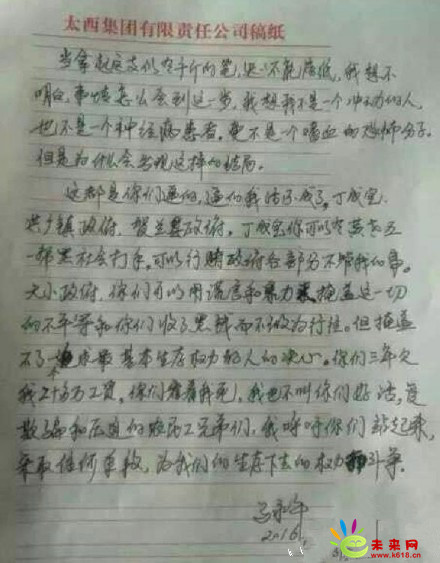 太西集团有限责任公司稿纸
当拿起这支似有千斤的笔,心不能
明白,事情怎么会到这一步。我想我不是一个冲动的人,
也不是一个神经病患者,更不是一个嗜血的恐怖分子。
但是为什么会出现这样的结局。
这都是你们逼的,逼的我活不成了。丁成宝
镇政府,贺兰县政府。丁成宝你可以
一帮黑社会打手,可以行贿政府各部分不管我的事。
大小政府,你们可以用谎言和暴力来掩盖这一切
的不平等和你们收了黑钱而不做为行径。但掩盖
不了 基本生存权力的人的决心。你们三年欠
我二十多万工资,你们看着我死,我也不叫你们好活,受
欺骗和压迫的农民工兄弟们,我呼吁你们站起来,
采取任何手段,为我们的生存下去的权力抖斗争。
马永平
2016.
未来网
www.k618.cn